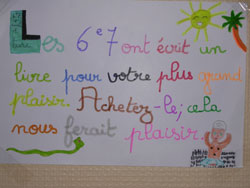 Les 6e7 ont écrit un
livre pour votre plus grand
plaisir. Achetez-le; cela
nous ferait plaisir.